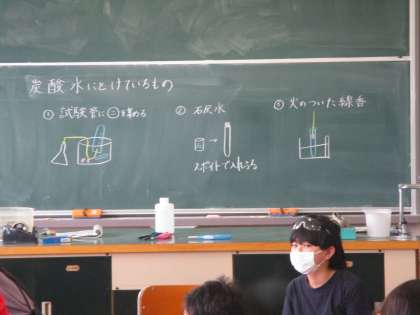 炭酸水にとけているもの
① 試験管に㊁を集める
② 石灰水
スポイトで入れる
③ 火のついた線香